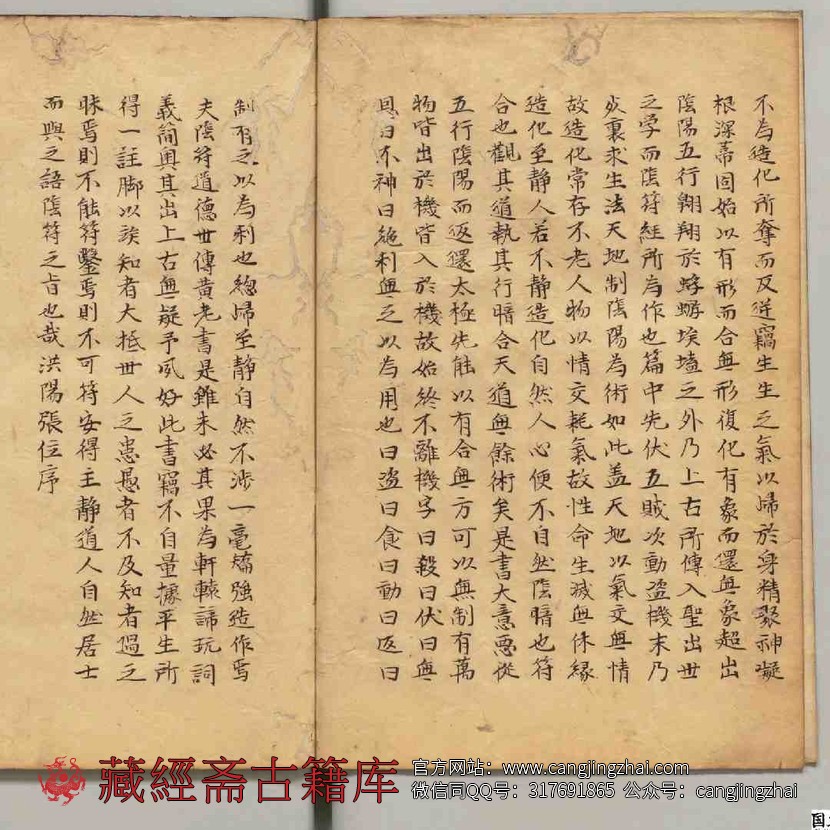 不為造化所奪而反逆竊生生之氣以歸於身精聚神凝
根深蒂固始以有形而合無形復化有象而還無象超出
陰陽五行翱翔於蜉蝣埃壒之外乃上古所傳入聖出世
之学而陰符經所為作也篇中先伏五賊次動盗機末乃
火裏求生法天地制陰陽為術如此盖天地以氣交無情
故造化常存不老人物以情交耗氣故性命生滅無休縁
造化至静人若不静造化自然人心便不自然陰暗也符
合也觀其道執其行暗合天道無餘術矣是書大意悉從
五行陰陽而返還太極先能以有合無方可以無制有萬
物皆出於機皆入於機故始終不離機字曰殺曰伏曰無
恩曰不神曰絶利無之以為用也曰盗曰食曰動曰返曰
制有之以為利也總歸至静自然不涉一毫矯強造作焉
夫陰符道德世傳黄老書是雖未必其果為軒轅諦玩詞
義簡奥其出上古無疑予夙好此書竊不自量據平生所
得一註脚以俟知者大抵世人之患愚者不及知者過之
昧焉則不能符鑿焉則不可符安得主静道人自然居士
而與之語陰符之旨也哉洪陽張位序
藏經斋古籍库
官方网站：www.cangjingzhai.com
微信同QQ号：317691865 公众号：cangjingzhai